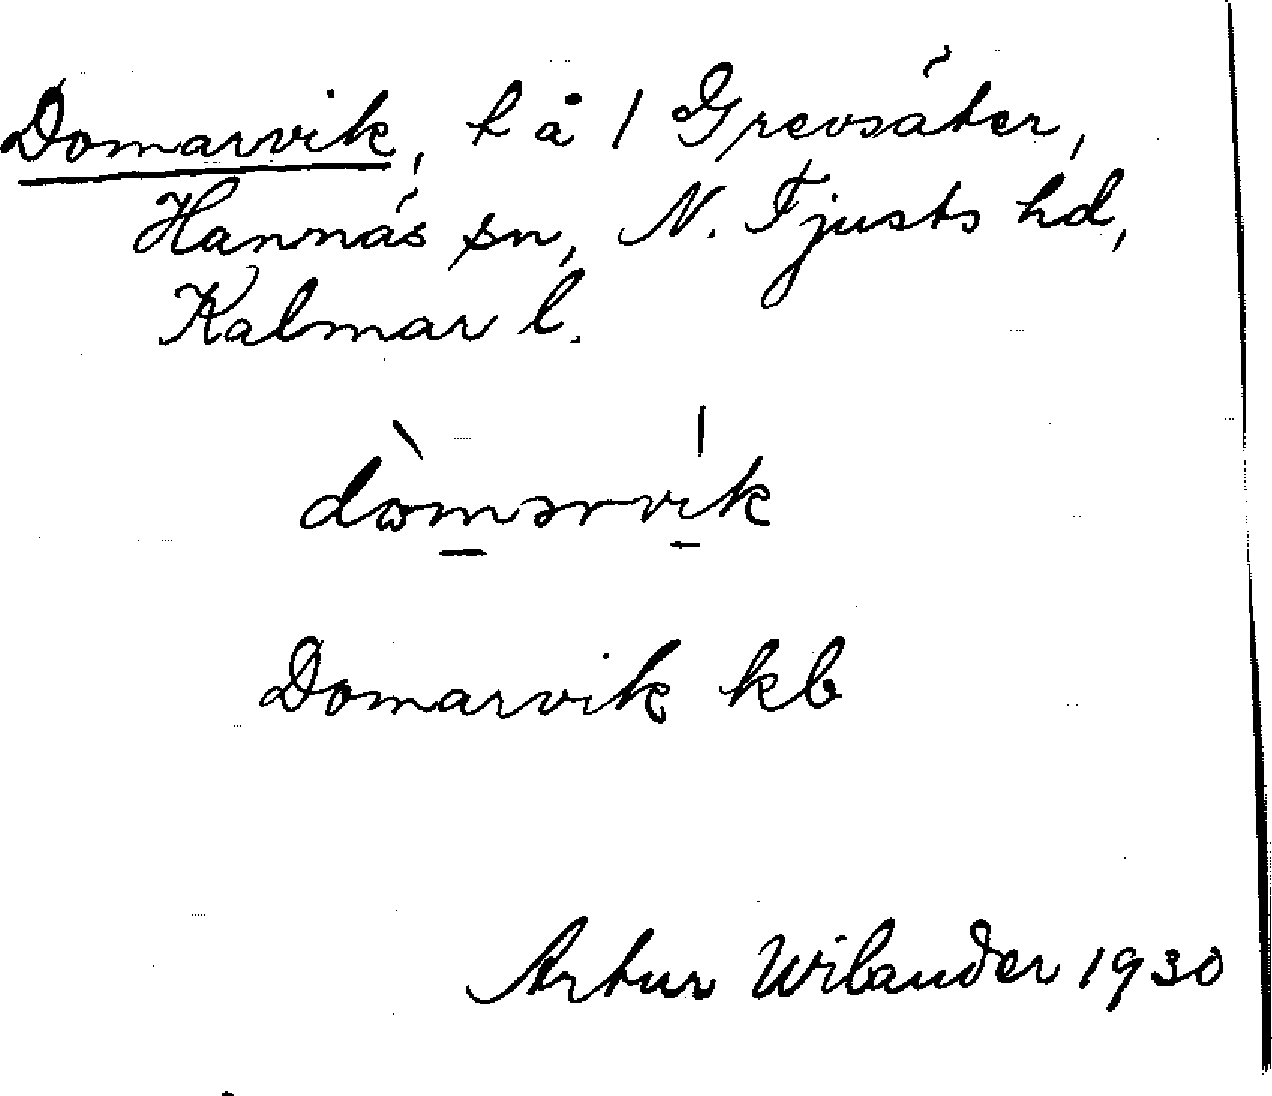 Domarvik, h å 1 Grevsäter,
Hannäs sn, N. Tjusts hd,
Kalmar l.
Domarvik kb
Artur Wilander 1930